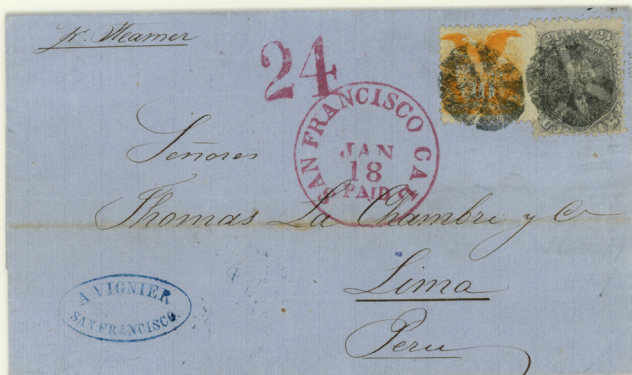 pr. Steamer
24
SAN FRANCISCO CAL
JAN
18
PAID
Señores
Thomas La Chambre y Co
Lima
Peru
A VIGNIER
SAN FRANCISCO.